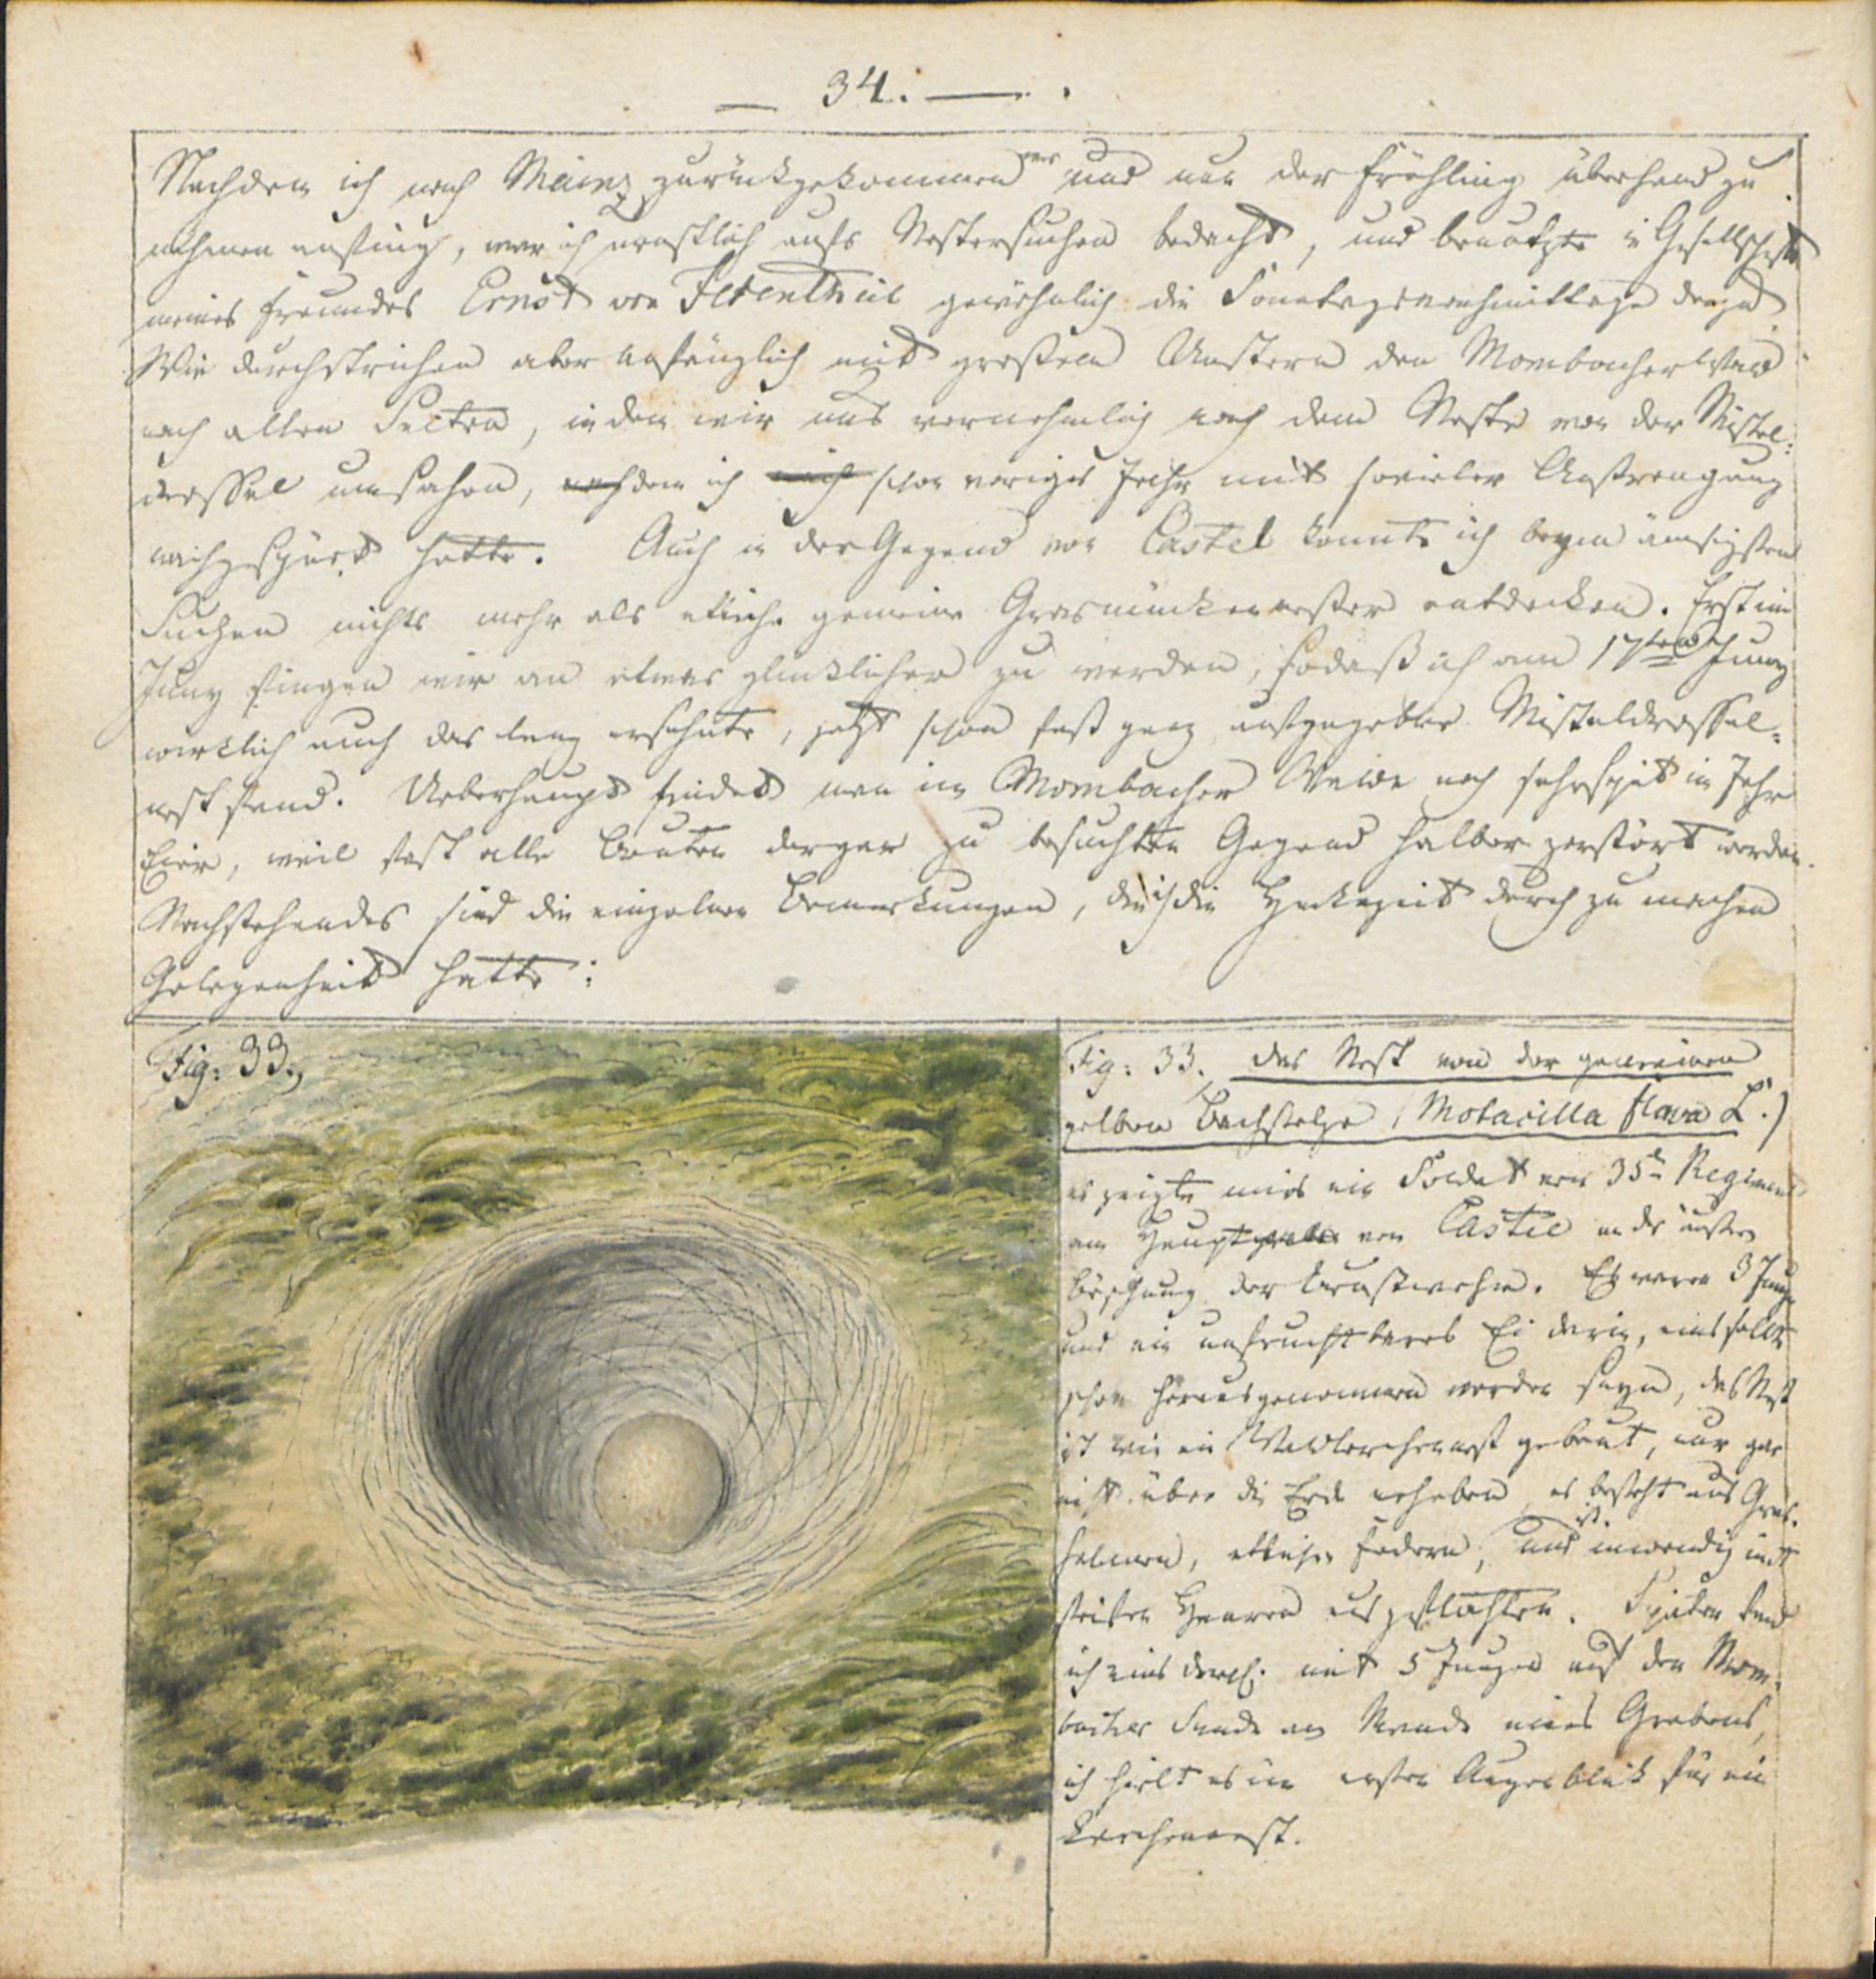 34.
Nachdem ich nach Mainz zurückgekommen war und nun der Frühling überhand zu
nehmen anfing, war ich ernstlich aufs Nestersuchen bedacht, und benutzte in Gesellschaft
meines Freundes Ernst von gewöhnlich die Sonntagsnachmittage dazu
Wir durchstrichen aber anfänglich mit großem Unstern den Mombacher Wald
nach allen Seiten, indem wir uns vornehmlich nach dem Neste von der Mistel-
drossel umsahen, nachdem ich schon voriges Jahr mit sovieler Anstrengung
nachgespürt hatte. Auch in der Gegend von Castel konnte ich beym ämsigsten
Suchen nichts mehr als etliche gemeine Grasmückennester entdecken. Erst im
Juny fingen wir an etwas glücklicher zu werden, sodaß ich am 17ten Juny
wirklich auch das lang ersehnte, jetzt schon fast ganz aufgegebene Misteldrossel-
nest fand. Ueberhaupt findet man im Mombacher Walde noch sehr spät im Jahr
Eier, weil fast alle Bruten der gar zu besuchten Gegend halber zerstört werden.
Nachstehendes sind die einzelnen Bemerkungen, die ich die Heckezeit durch zu machen
Gelegenheit hatte:
Fig: 33.
Fig: 33. das Nest von der gemeinen
gelben Bachstelze (Motacilla flava L.)
es zeigte mir ein Soldat vom 35t Regiment
am Hauptgraben von Castel an der äußern
Böschung der Brustwehr. Es waren 3 Junge
und ein unfruchtbares Ei darin, eins sollte
schon herausgenommen worden seyn, das Nest
ist wie ein Waldlerchennest gebaut, nur gar
nicht über die Erde erhoben, es besteht aus Gras-
halmen, etlichen Federn, und ist inwendig mit
steifen Haaren ausgeflochten. Später fand
ich eins dergl. mit 5 Jungen auf dem Mom-
bacher Sande am Rande eines Grabens,
ich hielt es im ersten Augenblick für ein
Lerchennest.